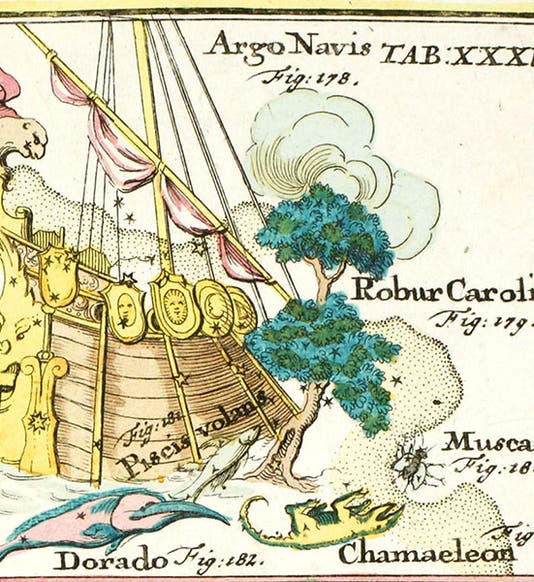 Argo Navis TAB: XXXI
Fig: 178.
Robur Caroli
Fig: 179.
Fig: 181.
Piscis volans
Musca
Fig: 18
Fig
Dorado Fig: 182.
Chamaeleon